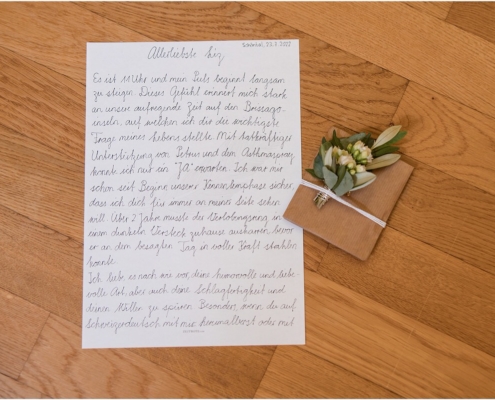 Samstag, 23.7.2022
Allerliebste Liz
Es ist 11 Uhr und mein Puls beginnt langsam
zu steigen. Dieses Gefühl erinnert mich stark
an unsere aufregende Zeit auf den Brissago-
inseln, auf welchen ich dir die wichtigste
Frage meines Lebens stellte. Mit tatkräftiger
Unterstützung von Petrus und dem Asthmaspray
konnte ich nur ein "JA" erwarten. Ich war mir
schon seit Beginn unserer Kennenlernphase sicher,
dass ich dich für immer an meiner Seite sehen
will. Über 2 Jahre musste der Verlobungsring in
einem dunkeln Versteck zuhause ausharren, bevor
er an dem besagten Tag in voller Kraft strahlen
konnte.
Ich liebe es nach wie vor, deine humorvolle und liebe-
volle Art, aber auch deine Schlagfertigkeit und
deinen Willen zu spüren. Besonders, wenn du auf
Schweizerdeutsch mit mir herumalberst oder mit